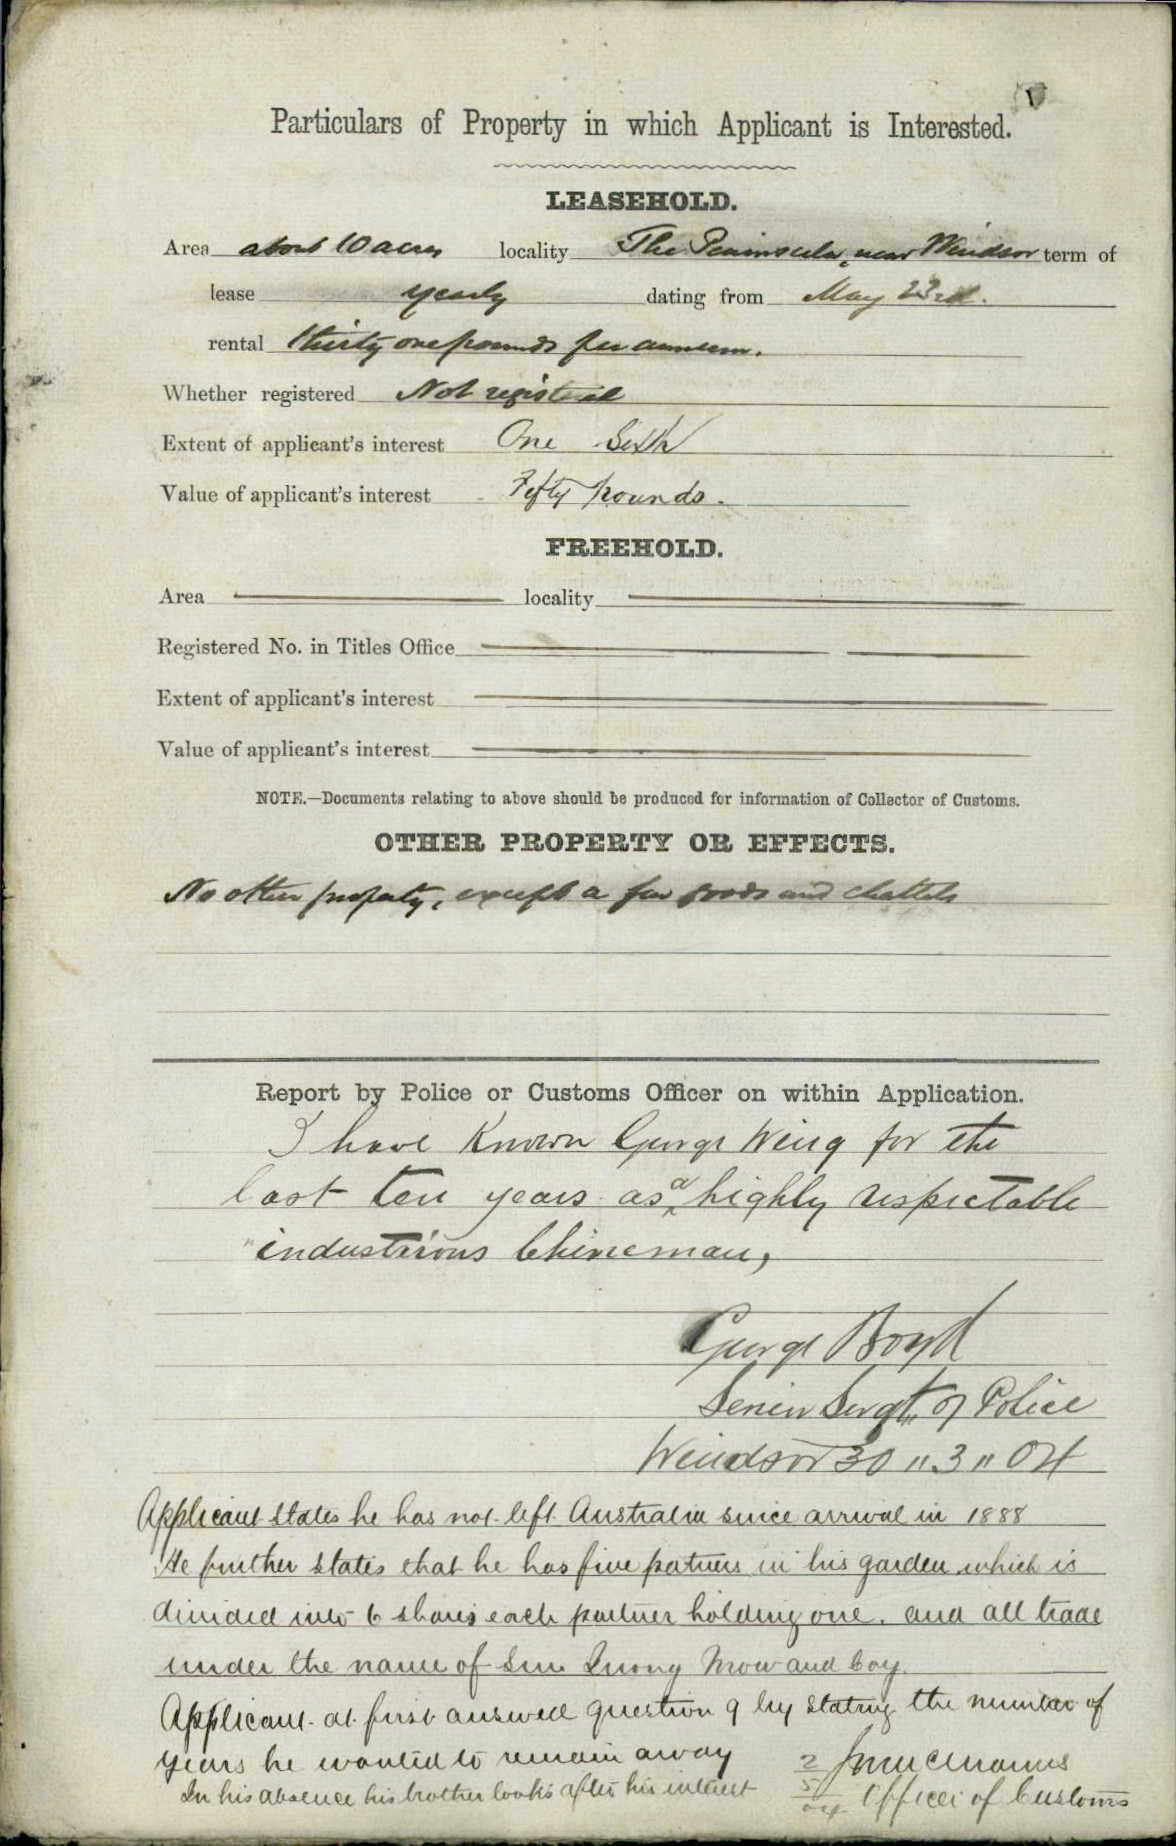 Particulars of Property in which Applicant is Interested.
LEASEHOLD.
Area about 10 acres locality The Peninsula, near Windsor term of
lease yearly dating from May 23rd.
rental thirty one pounds per annum.
Whether registered Not registered
Extent of applicant's interest One Sixth
Value of applicant's interest Fifty pounds.
FREEHOLD.
Area locality
Registered No. in Titles Office
Extent of applicant's interest
Value of applicant's interest
NOTE.—Documents relating to above should be produced for information of Collector of Customs.
OTHER PROPERTY OR EFFECTS.
No other property, except a few goods and chattels
Report by Police or Customs Officer on within Application.
I have known George Wing for the
last ten years as a highly respectable
industrious Chineman,
George Boyd
Senior Sergt. of Police
Windsor 30 " 3 " 04
Applicant states he has not left Australia since arrival in 1888
He further states that he has five patners in his garden which is
divided into 6 shares each partner holding one. and all trade
under the name of Sun Quong Mow and Coy.
Applicant at first answered question 9 by stating the number of
years he wanted to remain away
In his absence his brother looks after his interest
2/5/04
Officer of Customs